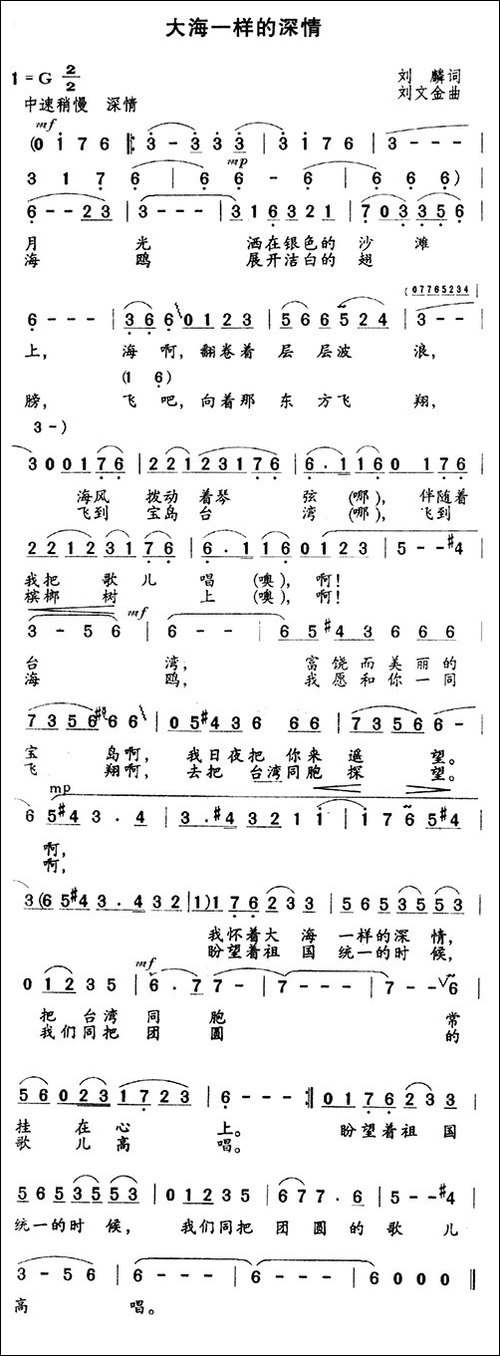 大海一样的深情
1=G 2/2
刘 麟词
刘文金曲
中速稍慢 深情
mf
(0 1 7 6 ‖: 3 - 3 3 3 | 3 1 7 1 | 3 - - - |
mp
3 1 7 6 | 6 6 - 6 | 6 6 6) |
6 - - 2 3 | 3 - - - | 3 1 6 3 2 1 | 7 0 3 3 5 6 |
月 光 洒在银色的 沙 滩
海 鸥 展开洁白的 翅
(0 7 7 6 5 2 3 4
6 - - - | 3 6 6 0 1 2 3 | 5 6 6 5 2 4 | 3 - - |
上， 海 啊，翻卷着 层 层波 浪，
(1 6)
膀， 飞 吧，向着那 东 方飞 翔，
3 -)
3 0 0 0 1 7 6 | 2 2 1 2 3 1 7 6 | 6 . 1 1 6 0 1 7 6 |
海风 拨动 着琴 弦 (哪)，伴随着
飞到 宝岛 台 湾 (哪)，飞到
2 2 1 2 3 1 7 6 | 6 . 1 1 6 0 1 2 3 | 5 - - #4 |
我把 歌儿 唱 (噢)，啊！
槟榔 树 上 (噢)，啊！
mf
3 - 5 6 | 6 - - | 6 5 #4 3 6 6 6 |
台 湾， 富饶而美丽的
海 鸥， 我愿和你一同
7 3 5 6 #6 6 6 | 0 5 #4 3 6 6 6 | 7 3 5 6 6 | 6 - |
宝 岛啊， 我日夜把 你来 遥 望。
飞 翔啊， 去把 台湾同胞 探 望。
mp
6 5 #4 3 . 4 | 3 . #4 3 2 1 1 | 1 7 6 5 #4 |
啊，
啊，
3 (6 5 #4 3 . 4 3 2 | 1 1) 1 7 6 2 3 3 | 5 6 5 3 5 5 3 |
我怀着大 海 一样的深 情，
盼望着祖 国 统一的时 候，
mf
0 1 2 3 5 | 6 . 7 7 - | 7 - - - | 7 - - 6 |
把 台湾 同 胞 常
我们同把 团 圆 的
5 6 0 2 3 1 7 2 3 | 6 - - - :‖ 0 1 7 6 2 3 3 |
挂 在 心 上。 盼望着祖 国
歌 儿 高 唱。
5 6 5 3 5 5 3 | 0 1 2 3 5 | 6 7 7 . 6 | 5 - - #4 |
统一的时 候， 我们同把 团 圆 的 歌 儿
3 - 5 6 | 6 - - - | 6 - - - | 6 0 0 0 ‖
高 唱。